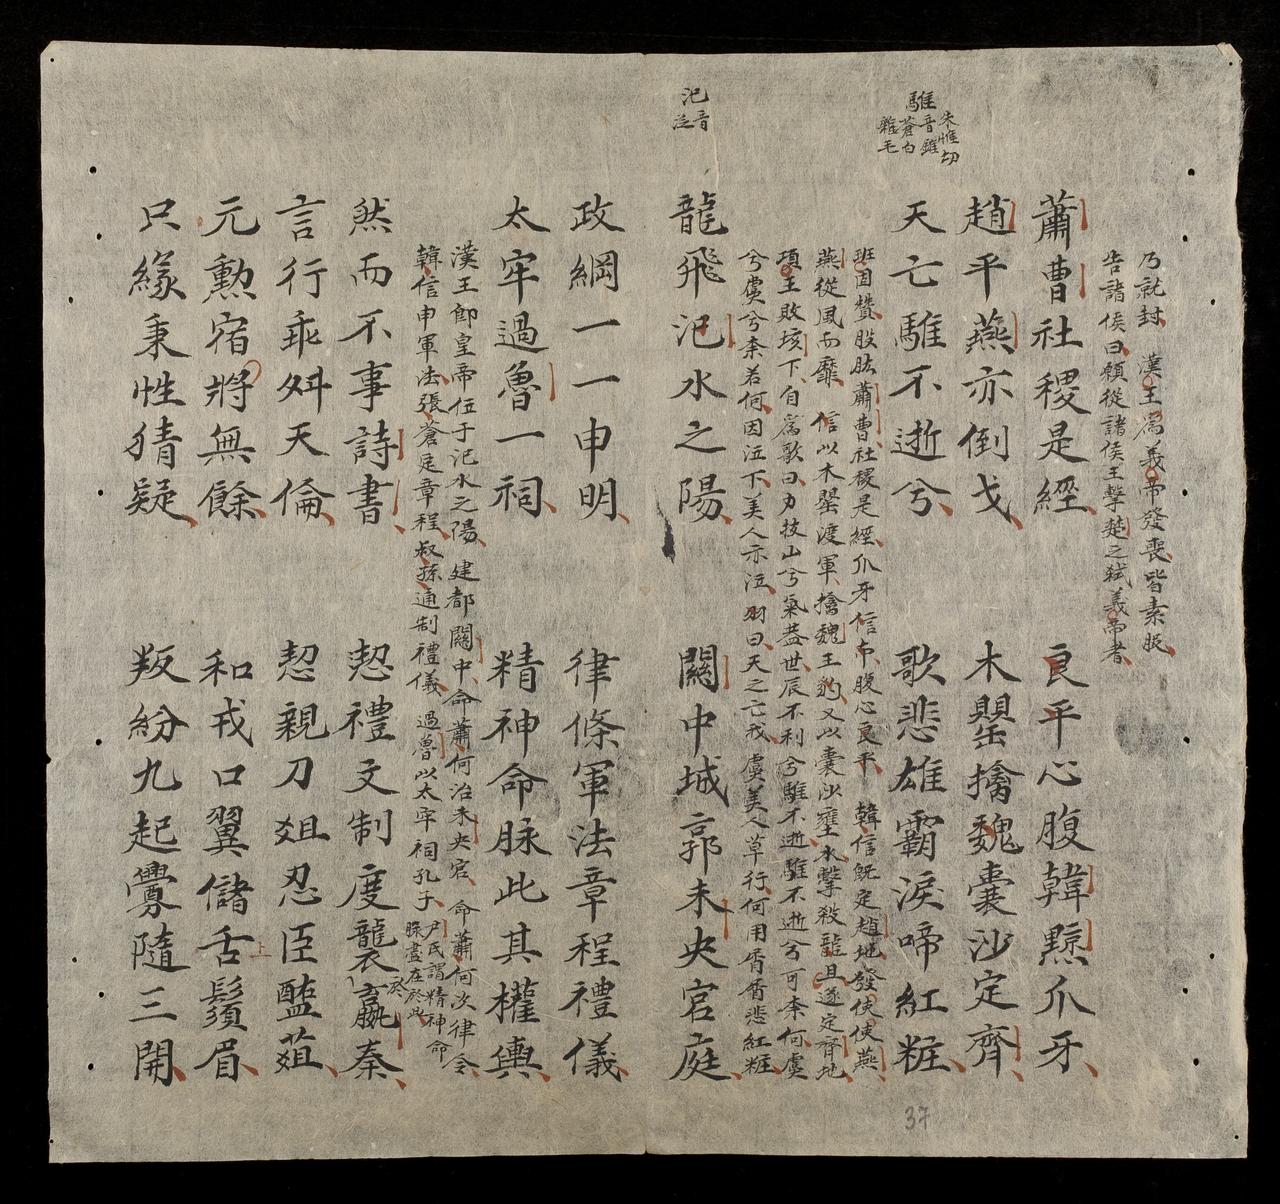 騅
音雖
朱惟切
蒼白
雜毛
汜
音
泛
乃就封 漢王爲義帝發喪皆素服
告諸侯曰願從諸侯王擊楚之弑義帝者
蕭曹社稷是經 良平心腹韓黥爪牙
趙平燕亦倒戈 木罌擒魏囊沙定齊
班固贊股肱蕭曹社稷是經爪牙信布腹心良平 韓信旣定趙地發使使燕
燕從風而靡 信以木罌渡軍擒魏王豹又以囊沙壅水擊殺龍且遂定齊地
天亡騅不逝兮 歌悲雄霸淚啼紅粧
項王敗垓下自爲歌曰力拔山兮氣蓋世辰不利兮騅不逝騅不逝兮可柰何虞
兮虞兮柰若何因泣下美人亦泣羽曰天之亡我 虞美人草行何用屑屑悲紅粧
龍飛汜水之陽 關中城郭未央宮庭
政綱一一申明 律條軍法章程禮儀
太牢過魯一祠 精神命脉此其權輿
漢王卽皇帝位于汜水之陽 建都關中命蕭何治未央宮 命蕭何次律令
韓信申軍法張蒼定章程叔孫通制禮儀 過魯以太牢祠孔子 尹氏謂精神命
脉盡在於此
然而不事詩書 恝禮文制度襲嬴秦
於
言行乖舛天倫 恝親刀俎忍臣醢葅
元勲宿將無餘 和戎口翼儲舌鬚眉
上
只緣秉性猜疑 叛紛九起釁隨三開
37